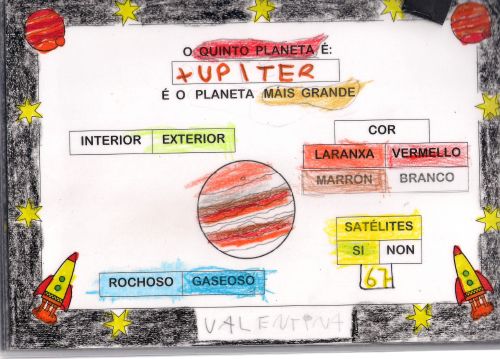 O QUINTO PLANETA É:
XUPITER
É O PLANETA MÁIS GRANDE
INTERIOR EXTERIOR
COR
LARANXA VERMELLO
MARRÓN BRANCO
SATÉLITES
SI NON
67
ROCHOSO GASEOSO
VALENTINA